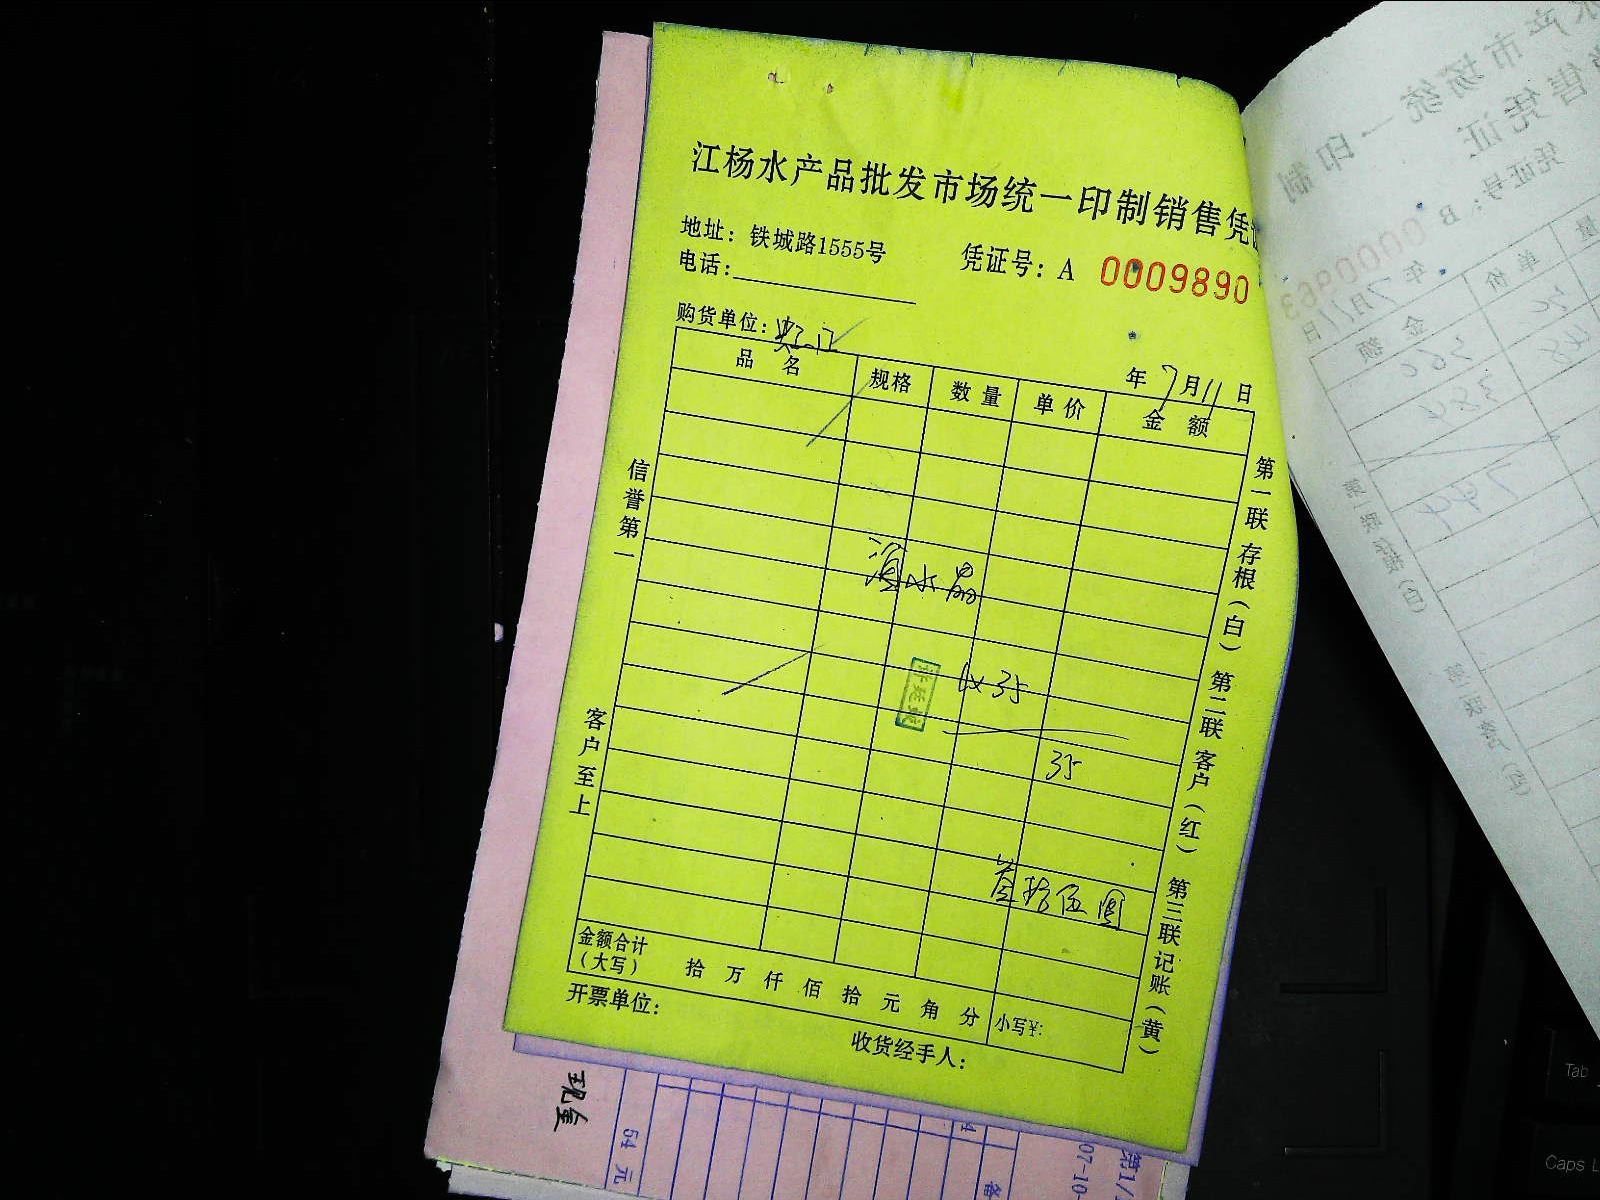 江杨水产品批发市场统一印制销售凭证
地址：铁城路1555号
凭证号：A 0009890
电话：
购货单位：
年 7 月 11 日
品名 规格 数量 单价 金额
水晶
1x35
35
叁拾伍圆
金额合计（大写） 拾 万 仟 佰 拾 元 角 分 小写¥:
开票单位：
收货经手人：
信誉第一
客户至上
第一联 存根（白） 第二联 客户（红） 第三联 记账（黄）
现金
54 元
07-10-
第1/
水产市场统一印制
销售凭证
凭证号：B 0000963
年 7月11日
量 单价 金额
366
384